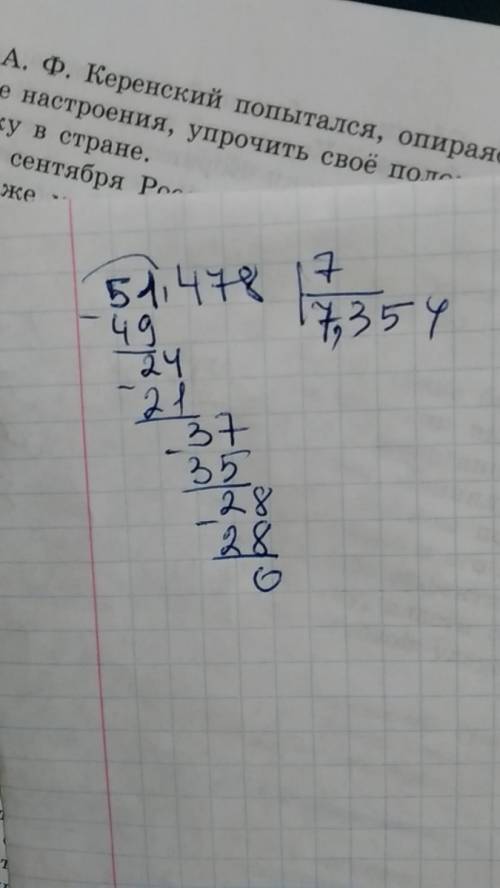 А. Ф. Керенский попытался, опирая
е настроения, упрочить своё поло
ку в стране.
сентября Рос
же
51,478 7
- 49 7,354
24
- 21
37
- 35
28
- 28
0